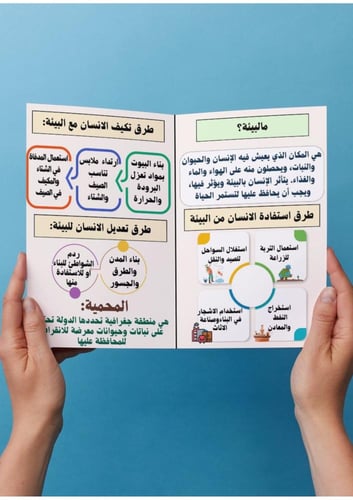 مالبيئة؟
هي المكان الذي يعيش فيه الإنسان والحيوان
والنبات، ويحصلون منه على الهواء والماء
والغذاء. يتأثر الإنسان بالبيئة ويؤثر فيها،
ويجب أن يحافظ عليها لتستمر الحياة
طرق استفادة الانسان من البيئة
استعمال التربة
للزراعة
استغلال السواحل
للصيد والنقل
استخراج
النفط
والمعادن
استخدام الاشجار
في البناء وصناعة
الاثاث
طرق تكيف الانسان مع البيئة:
بناء البيوت
بمواد تعزل
البرودة
والحرارة
ارتداء ملابس
تناسب
الصيف
والشتاء
استعمال المدفأة
في الشتاء
والمكيف
في الصيف
طرق تعديل الانسان للبيئة:
بناء المدن
والطرق
والجسور
ردم
الشواطئ للبناء
أو للاستفادة
منها
المحمية:
هي منطقة جغرافية تحددها الدولة
على نباتات وحيوانات معرضة للانقراض
للمحافظة عليها